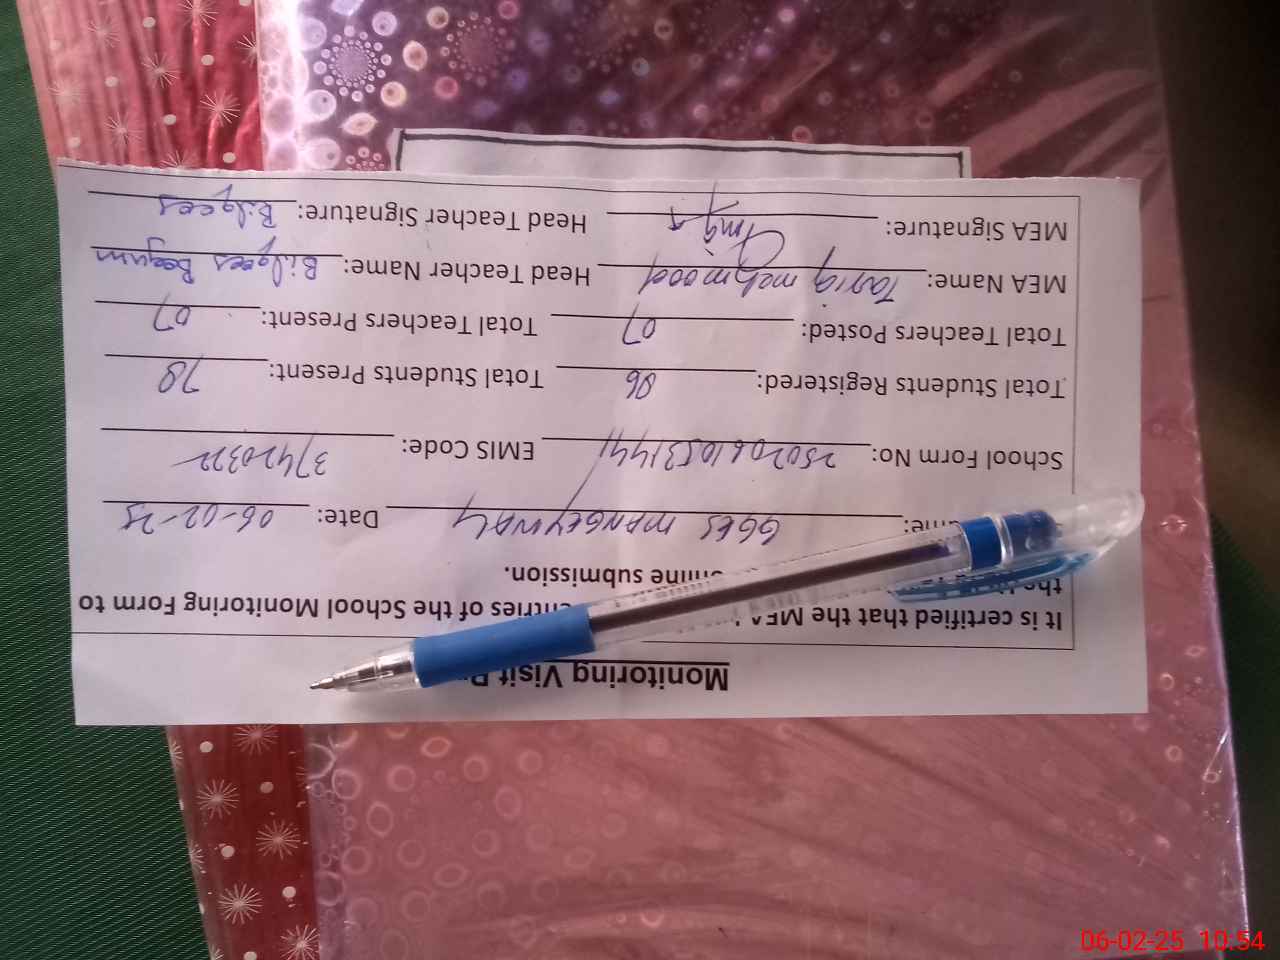 Monitoring Visit
It is certified that the MEA entries of the School Monitoring Form to
the online submission.
GGES MANGEYWALY Date: 06-02-25
School Form No: EMIS Code: 37420322
Total Students Registered: 86 Total Students Present: 78
Total Teachers Posted: 07 Total Teachers Present: 07
MEA Name: Tariq mehmood Head Teacher Name: Bilqees Begum
MEA Signature: Head Teacher Signature: Bilqees
06-02-25 10:54